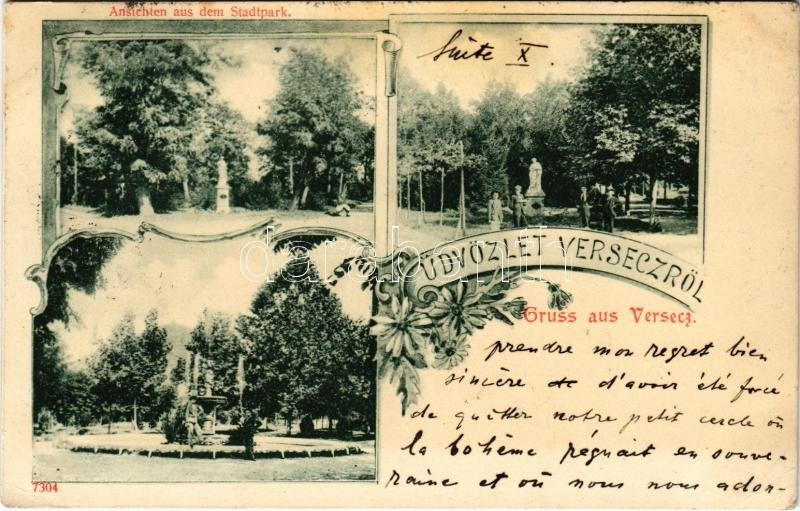 Ansichten aus dem Stadtpark.
Suite X.
ÜDVÖZLET VERSECZRŐL
Gruss aus Versecz.
prendre mon regret bien
sincère de d'avoir été forcé
de quitter notre petit cercle où
la bohème régnait en souve-
raine et où nous nous ador-
7304
darabanth